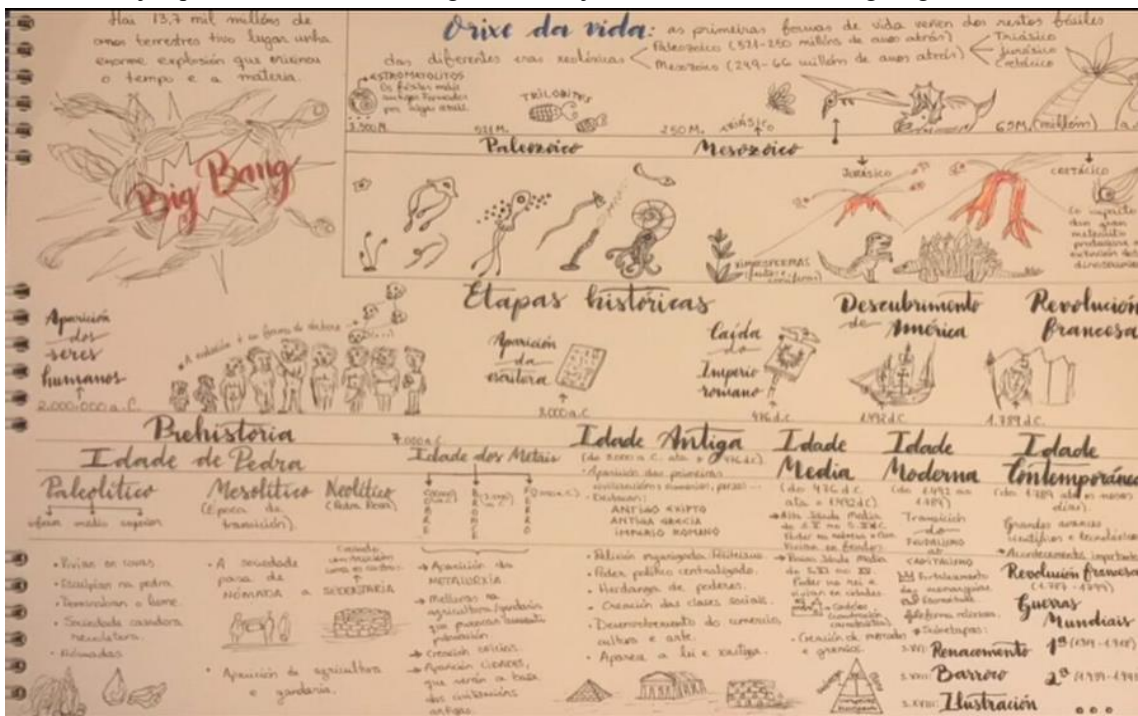 Hai 13,7 mil millóns de
anos terrestres tivo lugar unha
enorme explosión que
o tempo e a materia.
Big Bang
Orixe da vida: as primeiras formas de vida veñen dos restos fósiles
das diferentes eras xeolóxicas
Paleozoico (571-250 millóns de anos atrás)
Mesozoico (249-66 millóns de anos atrás)
Triásico
Jurásico
Cretácico
ESTROMATOLITOS
Os fósiles máis
antigos formados
por algas
3.500M.
TRILOBITES
521 M.
250 M.
TRIÁSICO
65M. (millóns)
Paleozoico
Mesozoico
JURÁSICO
CRETÁCICO
XIMNOSPERMAS
Co impacto
dun gran
meteorito
produciuse a
extinción dos
dinosauros
Etapas históricas
Aparición
dos
seres
humanos
2.000.000 a.C.
A evolución e as formas do
Aparición
da
escritura
3.000 a.C.
Caída
do
Imperio
romano
476 d.C.
Descubrimento
de América
1.492 d.C.
Revolución
francesa
1.789 d.C.
Prehistoria
Idade de Pedra
Paleolítico
medio superior
Mesolítico
(Época de
transición).
Neolítico
7.000 a.C
Idade dos Metais
COBRE
BRONCE
FERRO
Idade Antiga
(do 3000 a. C. ata o 476 d.C).
Aparición das primeiras
civilizacións:
Destacan:
ANTIGO EXIPTO
ANTIGA GRECIA
IMPERIO ROMANO
Idade
Media
(do 476 d.C.
ata o 1492 d.C)
Alta Idade Media
do S.V ao S.X d.C
Poder na nobreza e
Vivían en feudos.
Baixa Idade Media
do S.XI ao XV
Poder no rei e
vivían en cidades.
Creación de mercados
e gremios.
Idade
Moderna
(do 1.492 ao
1789)
Transición
do
FEUDALISMO
ao
CAPITALISMO
Fortalecemento
das monarquías
Reforma relixiosa.
Subetapas:
Renacemento
s.XVII: Barroco
s.XVIII: Ilustración
Idade
Contemporánea
(do 1789 ata os nosos
días).
Grandes avances
científicos e tecnolóxicos
Acontecementos importantes
Revolución francesa
(1789-1799)
Guerras
Mundiais
1ª
2ª
• Vivían en covas
• Esculpían na pedra
• Dominaban o lume.
• Sociedade cazadora
recolectora.
• Nómadas
• A sociedade
pasa de
NÓMADA a SEDENTARIA
• Aparición da agricultura
e gandaría.
Aparición da
METALURXIA
Melloras na
agricultura/gandaría
que provocan aumento
poboación
Creación oficios.
Aparición CIDADES,
que serán a base
das civilizacións
antigas.
• Relixión organizada. Politeísmo
• Poder político centralizado.
• Herdanza de poderes.
• Creación das clases sociais.
• Desenvolvemento do comercio,
cultura e arte.
• Aparece a lei e xustiza.